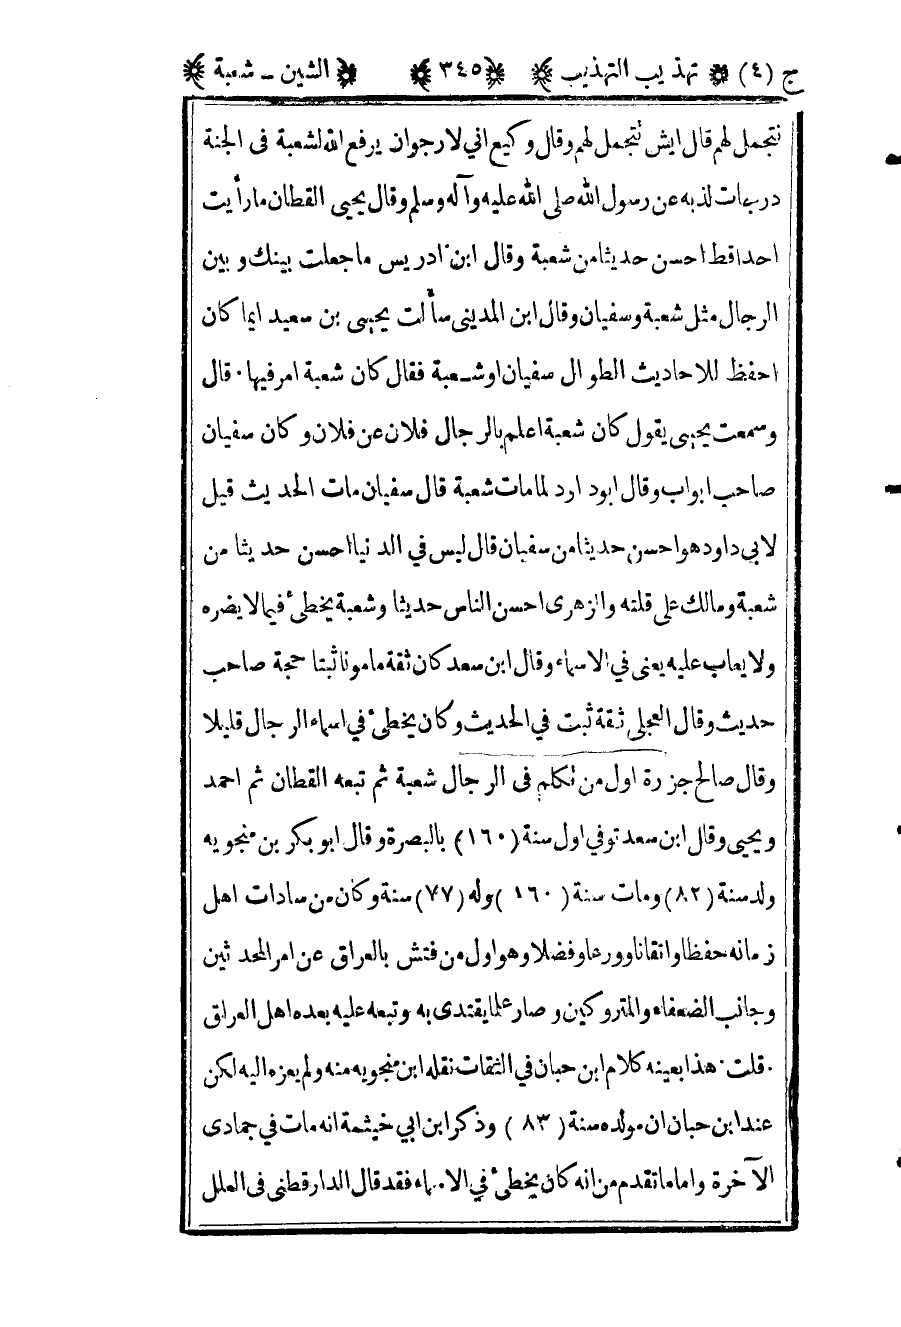 ج (٤) تهذيب التهذيب ٣٤٥ الشين ـ شعبة
نتجمل لهم قال ايش نتجمل لهم وقال وكيع اني لارجو ان يرفع الله لشعبة فى الجنة
درجات لذبه عن رسول الله صلى الله عليه وآله وسلم وقال يحيى القطان مارأيت
احدا قط احسن حديثا من شعبة وقال ابن ادريس ماجعلت بينك وبين
الرجال مثل شعبة وسفيان وقال ابن المدينى سألت يحيى بن سعيد ايما كان
احفظ للاحاديث الطوال سفيان اوشعبة فقال كان شعبة امر فيها ٠ قال
وسمعت يحيى يقول كان شعبة اعلم بالرجال فلان عن فلان وكان سفيان
صاحب ابواب وقال ابود ارد لمامات شعبة قال سفيان مات الحديث قيل
لابي داود هو احسن حديثا من سفيان قال ليس في الدنيا احسن حديثا من
شعبة ومالك على قلته والزهرى احسن الناس حديثا وشعبة يخطئ فيما لا يضره
ولا يعاب عليه يعنى في الاسماء وقال ابن سعد كان ثقة مامونا ثبتا حجة صاحب
حديث وقال العجلى ثقة ثبت في الحديث وكان يخطئ في اسماء الرجال قليلا
وقال صالح جزرة اول من تكلم فى الرجال شعبة ثم تبعه القطان ثم احمد
ويحيى وقال ابن سعد توفي اول سنة (١٦٠) بالبصرة وقال ابو بكر بن منجويه
ولد سنة (٨٢) ومات سنة (١٦٠) وله (٧٧) سنة وكان من سادات اهل
زمانه حفظا واتقانا وورعا وفضلا وهو اول من فتش بالعراق عن امر المحدثين
وجانب الضعفاء والمتروكين وصار علما يقتدى به وتبعه عليه بعده اهل العراق
٠ قلت ٠ هذا بعينه كلام ابن حبان في الثقات نقله ابن منجويه منه ولم يعزه اليه لكن
عند ابن حبان ان مولده سنة (٨٣) وذكر ابن ابي خيثمة انه مات في جمادى
الآخرة واما ما تقدم من انه كان يخطئ في الاسماء فقد قال الدارقطنى فى العلل